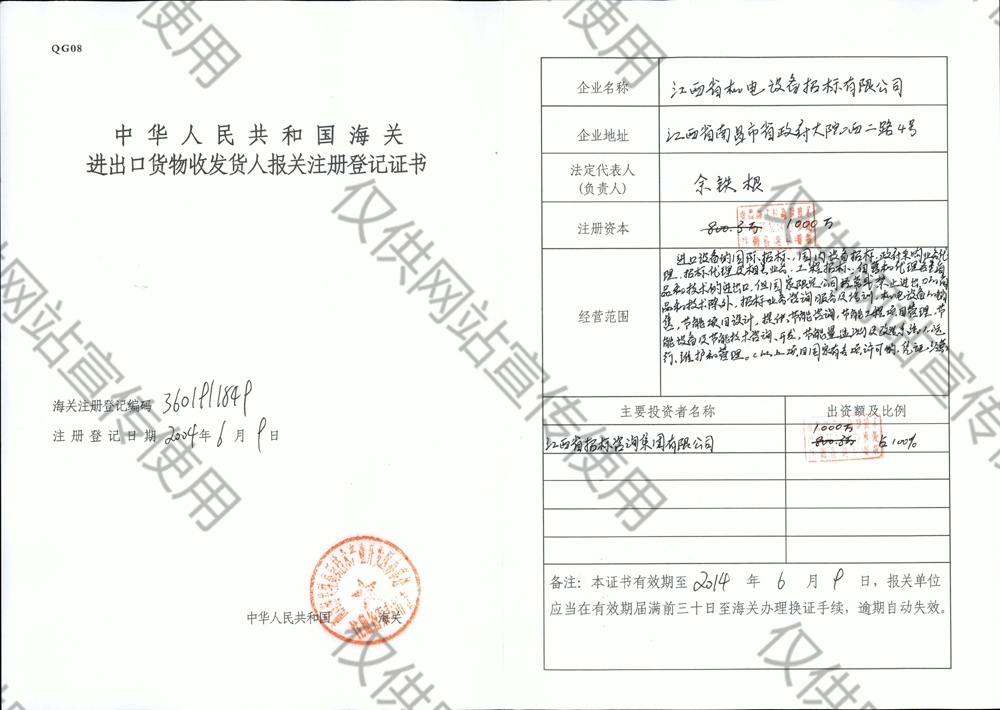 QG08
中华人民共和国海关
进出口货物收发货人报关注册登记证书
海关注册登记编码 3601911849
注册登记日期 2004年6月9日
中华人民共和国 海关
企业名称 江西省机电设备招标有限公司
企业地址 江西省南昌市省政府大院 西二路4号
法定代表人
(负责人)
余铁根
注册资本 800.3万 1000万
经营范围
进口设备的国际招标、国内设备招标、政府采购业务代
理、招标代理及相关业务、工程招标、自营和代理各类商
品和技术的进出口,但国家限定公司经营或禁止进出口的商
品和技术除外,招标业务咨询服务及培训,机电设备的销
售,节能项目设计,节能咨询,节能工程项目管理,节
能设备及节能技术咨询、开发,节能量
维护和管理。(以上项目国家有专项许可的,凭证
主要投资者名称 出资额及比例
江西省招标咨询集团有限公司
1000万
800.3万 占100%
备注:本证书有效期至 2014 年 6 月 9 日,报关单位
应当在有效期届满前三十日至海关办理换证手续,逾期自动失效。
仅供网站宣传使用